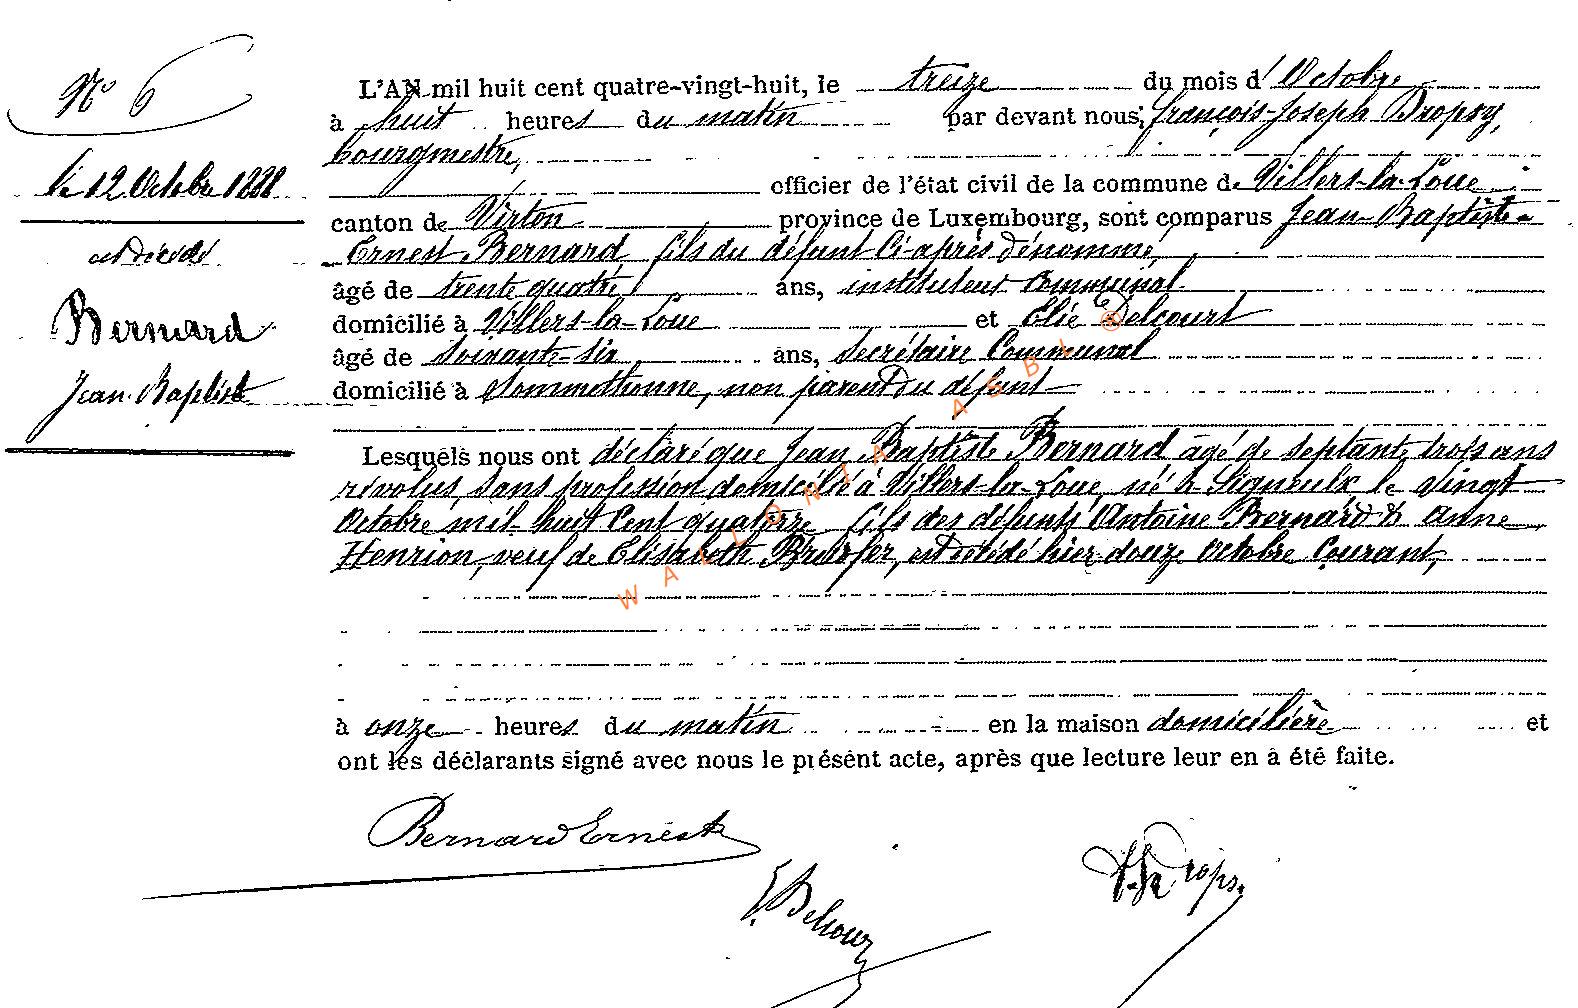 N° 6
le 12 Octobre 1888
est décédé
Bernard
Jean-Baptiste
L'AN mil huit cent quatre-vingt-huit, le treize du mois d'Octobre
à huit heures du matin par devant nous, François-Joseph Dropsy,
bourgmestre,
officier de l'état civil de la commune de Villers-la-Loue
canton de Virton province de Luxembourg, sont comparus Jean-Baptiste-
Ernest Bernard fils du défunt ci-après dénommé,
âgé de trente quatre ans, instituteur communal
domicilié à Villers-la-Loue et Elie Delcourt
âgé de soixante-six ans, secrétaire communal
domicilié à Sommethonne, non parent du défunt
Lesquels nous ont déclaré que Jean Baptiste Bernard âgé de septante trois ans
révolus, sans profession domicilié à Villers-la-Loue, né à Signeulx le vingt
Octobre mil huit cent quatorze fils des défunts Antoine Bernard & Anne
Henrion, veuf de Elisabeth, est décédé hier douze Octobre courant,
à onze heures du matin en la maison domicilière et
ont les déclarants signé avec nous le présent acte, après que lecture leur en a été faite.
Bernard Ernest
WALLONIA ASBL ©